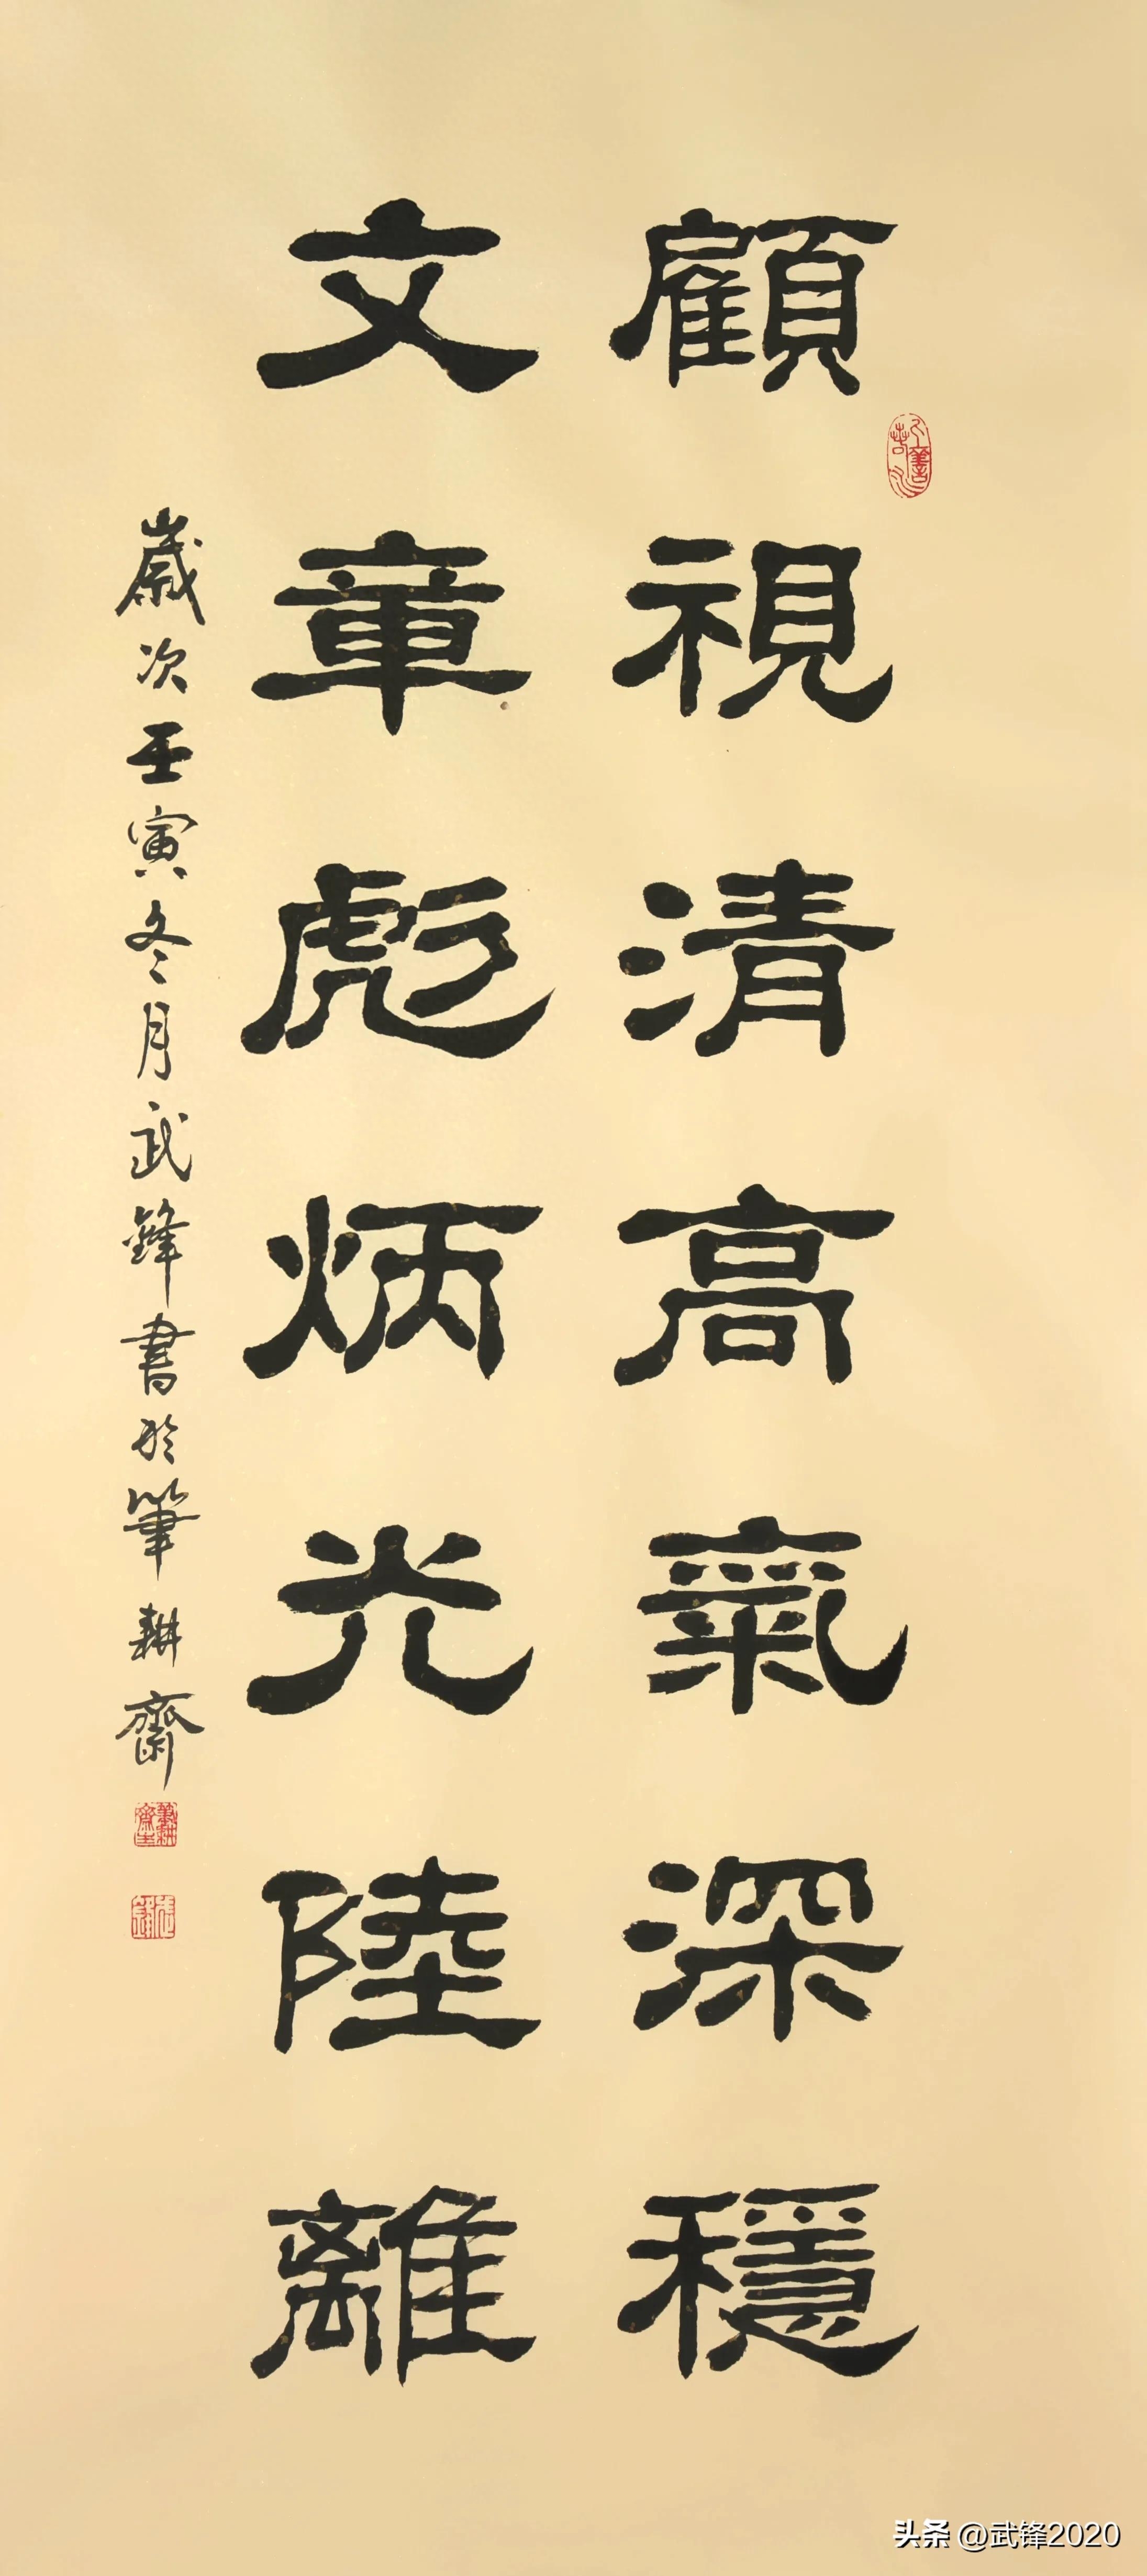 顧視清高氣深穩
文章彪炳光陸離
歲次壬寅冬月武鋒書於筆耕齋
头条 @武锋2020